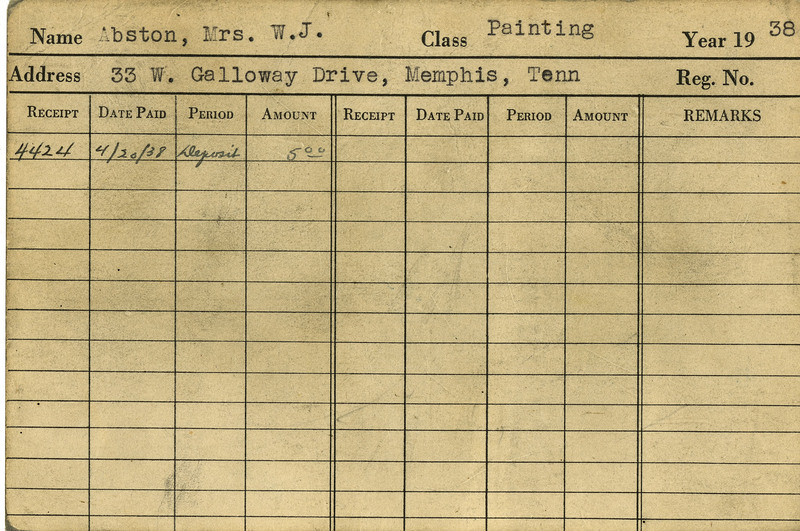 Name Abston, Mrs. W.J. Class Painting Year 19 38
Address 33 W. Galloway Drive, Memphis, Tenn Reg. No.
RECEIPT DATE PAID PERIOD AMOUNT RECEIPT DATE PAID PERIOD AMOUNT REMARKS
4424 4/20/38 Deposit 5.00